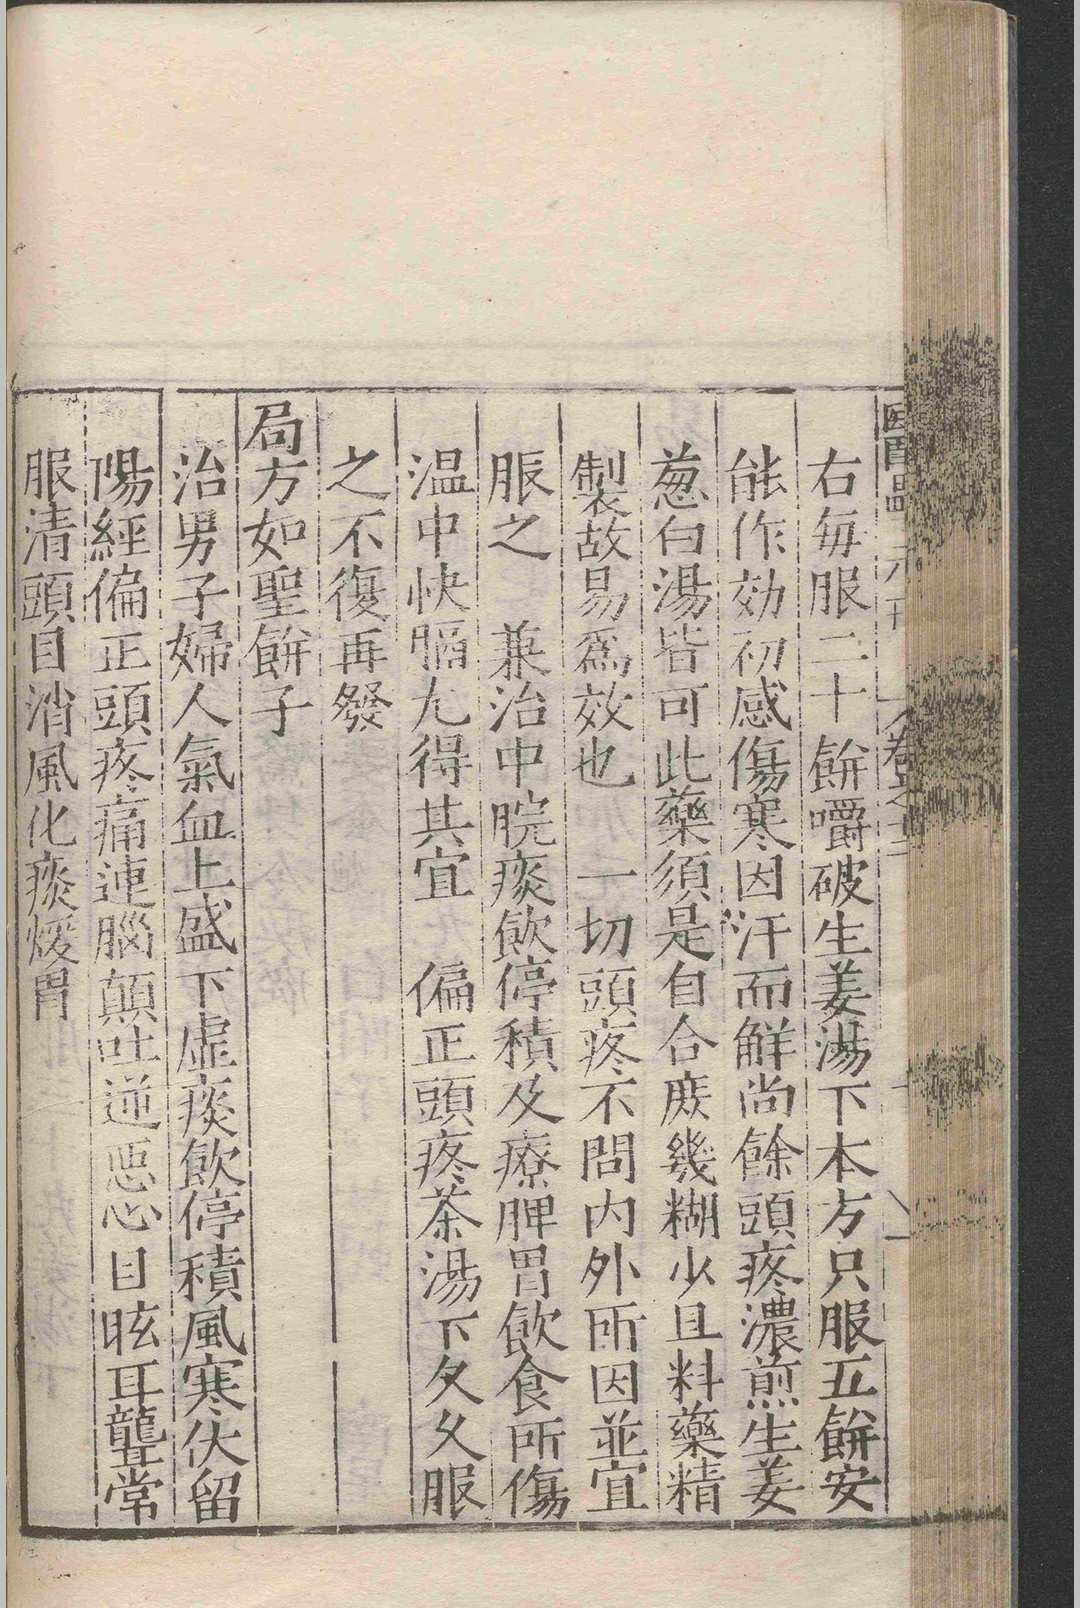 右每服二十餅嚼破生姜湯下本方只服五餅安
能作効初感傷寒因汗而鮮尚餘頭疼濃煎生姜
葱白湯皆可此藥須是自合庶幾糊少且料藥精
製故易爲效也　一切頭疼不問内外所因並宜
服之　兼治中脘痰飲停積及療脾胃飲食所傷
温中快膈九得其宜　偏正頭疼茶湯下久久服
之不復再發
局方如聖餅子
治男子婦人氣血上盛下虛痰飲停積風寒伏留
陽經偏正頭疼痛連腦顛吐逆惡心目眩耳聾常
服清頭目消風化痰煖胃